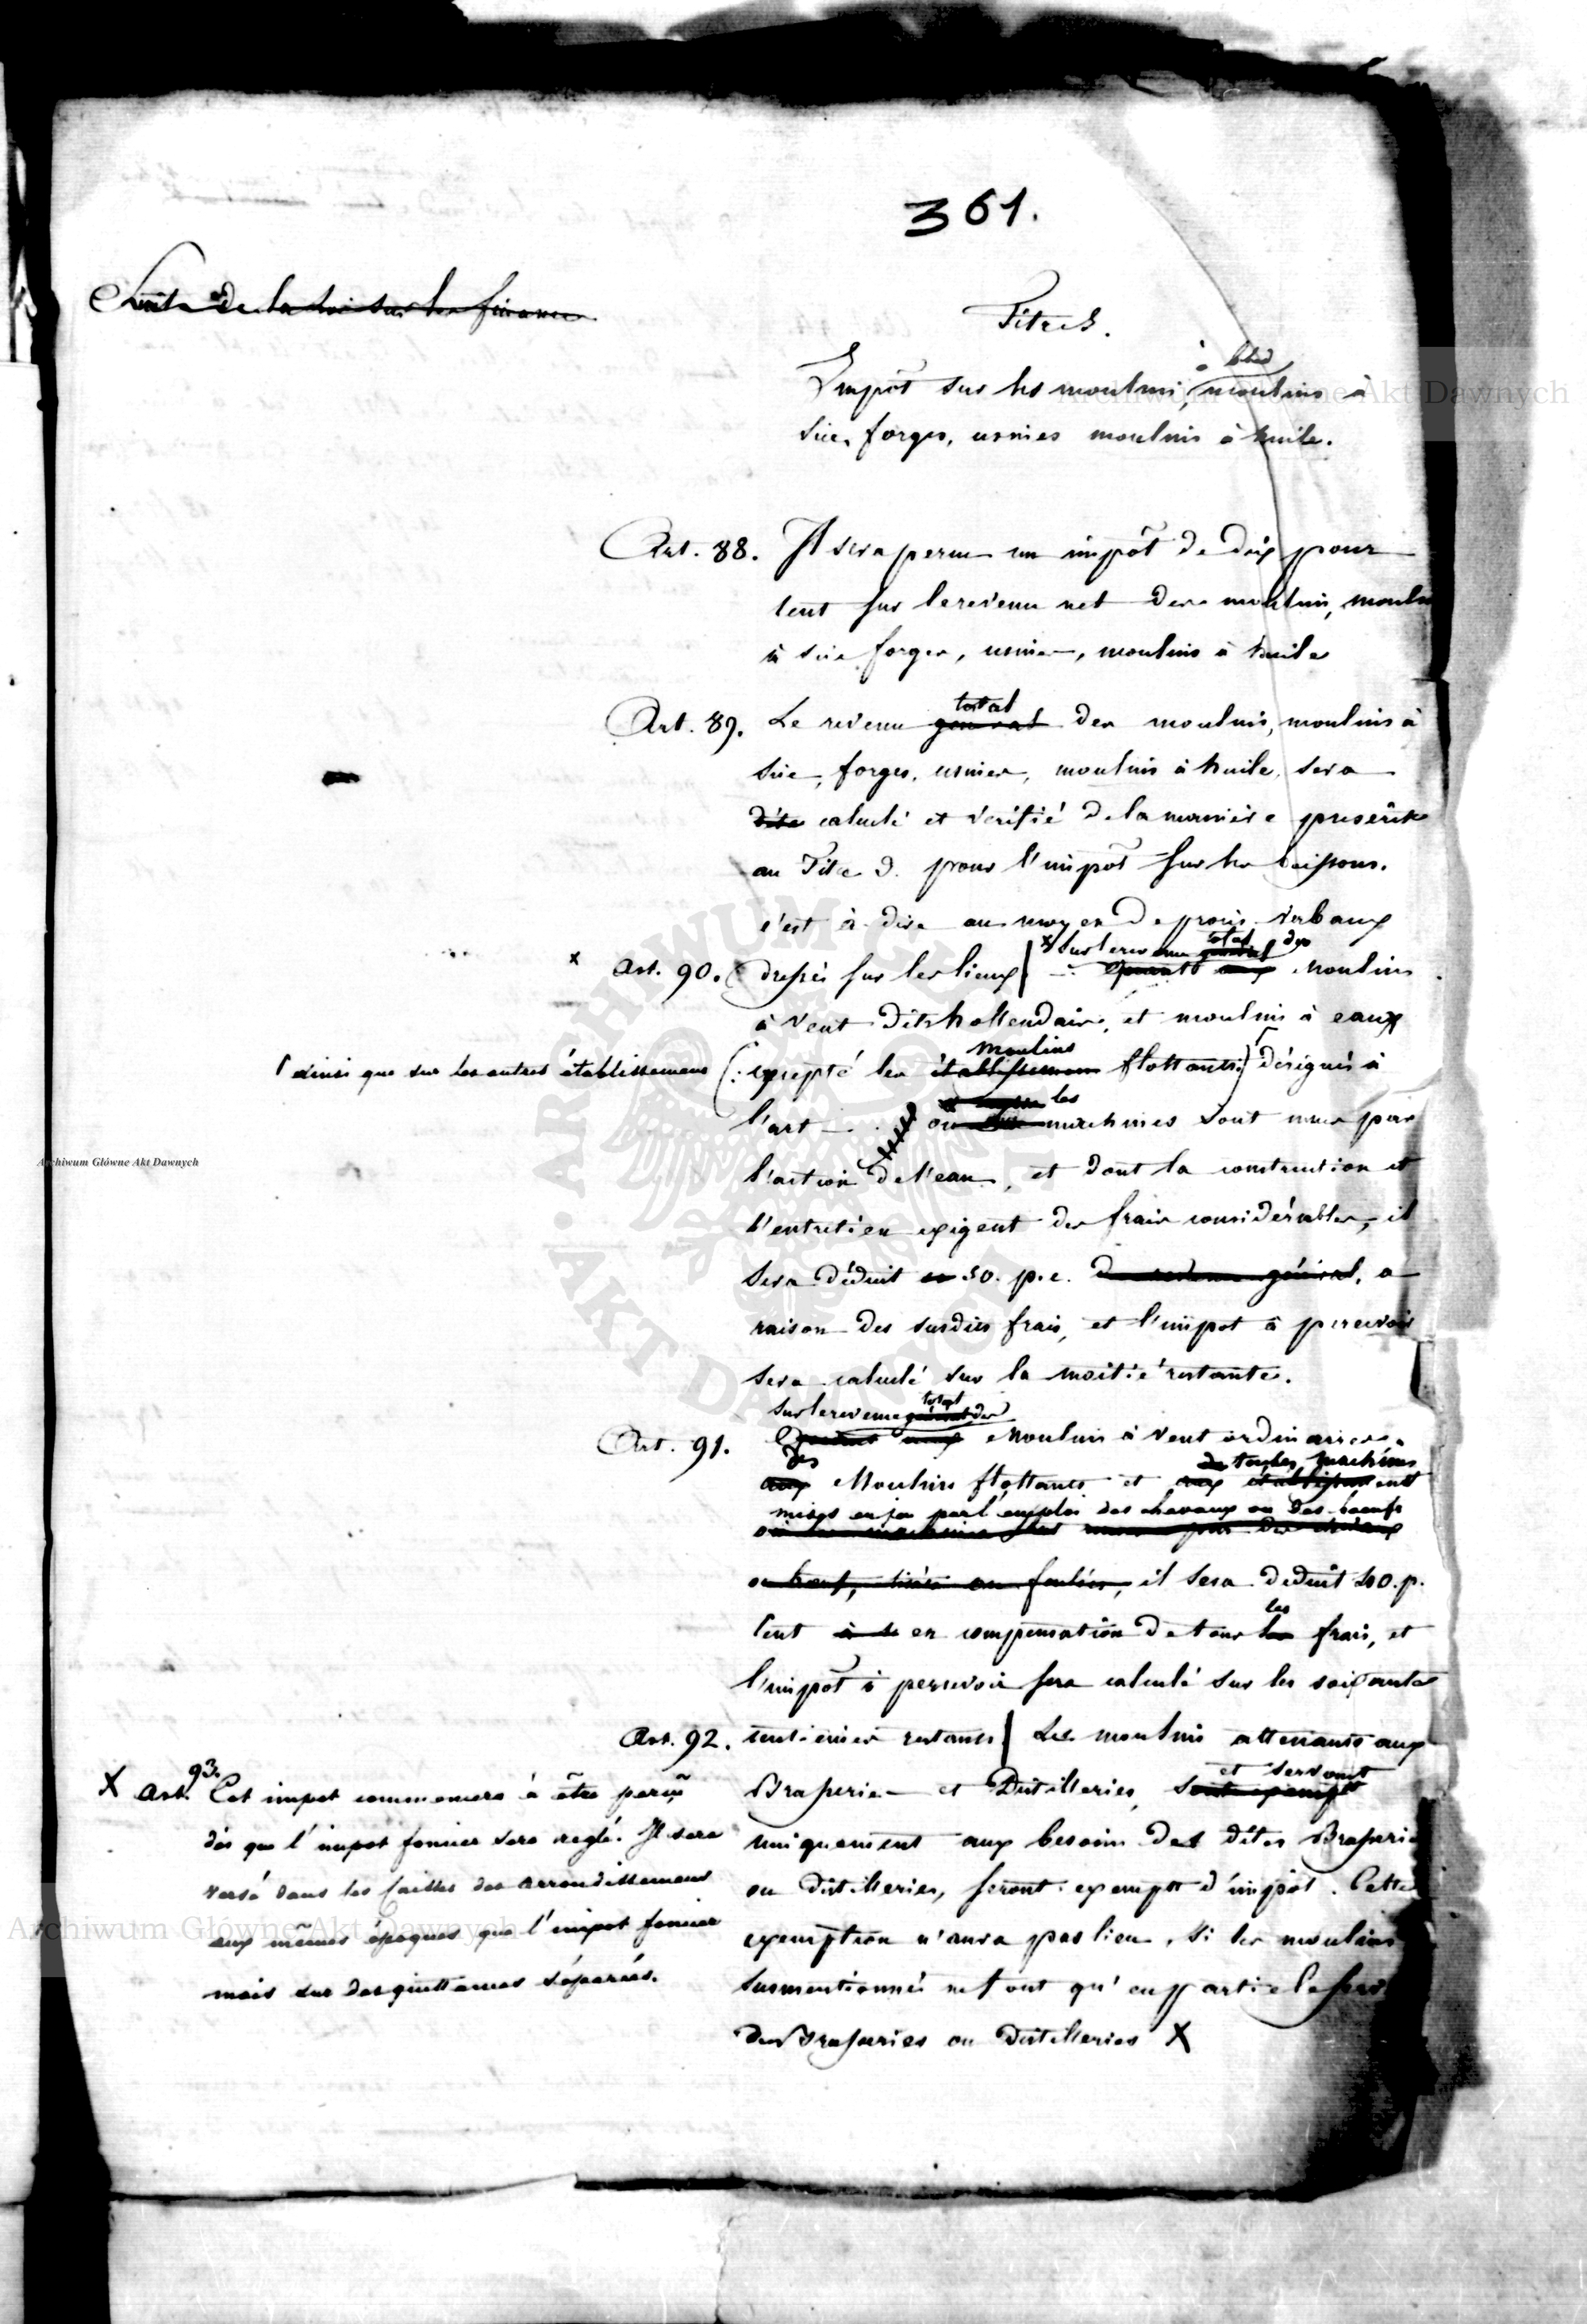 361.
Suite de la loi sur les finances
Titre 8.
à bled
Impôt sur les moulins, moulins à
scie, forges, usines moulins à huile.
Art. 88. Il sera perçu un impôt de dix pour
cent sur le revenu net des moulins, moulins
à scie forges, usines, moulins à huile
total
Art. 89. Le revenu général des moulins, moulins à
scie, forges, usines, moulins à huile, sera
calculé et vérifié de la manière prescrite
au Titre pour l'impôt sur les boissons.
c'est à dire au moyen de procès verbaux
x sur le revenu total général des
x Art. 90. dressés sur les lieux quant aux Moulins
à vent dits hollandais, et moulins à eaux
moulins
(: excepté les établissemens flottants:) désignés à
Γ ainsi que sur les autres établissemens
les
l'art où machines sont mues par
l'action de l'eau, et dont la construction et
l'entretien exigent des frais considérables, il
sera déduit 50. p. c. du revenu général, a
raison des susdits frais, et l'impot à percevoir
sera calculé sur la moitié restante.
sur le revenu total général des
Art. 91. Quant aux Moulins à vent ordinaires.
des de toutes machines
aux Moulins flottants et aux établissement
mises en jeu par l'emploi des chevaux ou des boeufs
où les machines sont mues par des chevaux
ou boeufs, il sera deduit 40. p.
les
Cent en compensation de tous les frais, et
l'impôt à percevoir sera calculé sur les soixante
Art. 92. centièmes restants Les moulins attenants aux
et servant
Brasseries et Distilleries, sont exempts
uniquement aux besoins des dites Brasseries
ou distilleries, seront exempts d'impôt. Cette
exemption n'aura pas lieu, si les moulins
susmentionnés ne font qu'en partie le
des Brasseries ou Distilleries X
X Art. 93. Cet impot commencera à être perçu
dès que l'impot foncier sera reglé. Il sera
versé dans les Caisses des arrondissemens
aux mêmes époques que l'impot foncier
mais sur des quittances séparées.
Archiwum Główne Akt Dawnych
Archiwum Główne Akt Dawnych
Archiwum Główne Akt Dawnych